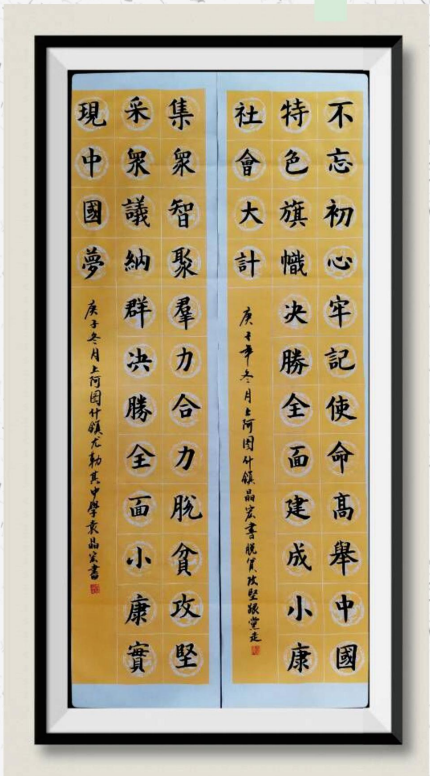 不忘初心牢記使命高舉中國
特色旗幟决勝全面建成小康
社會大計
庚子年冬月上阿图什鎮晶宏書脱貧攻堅跟黨走
集衆智聚羣力合力脱貧攻堅
采衆議納群决勝全面小康實
現中國夢
庚子冬月上阿图什鎮尤勒其中學袁晶宏書